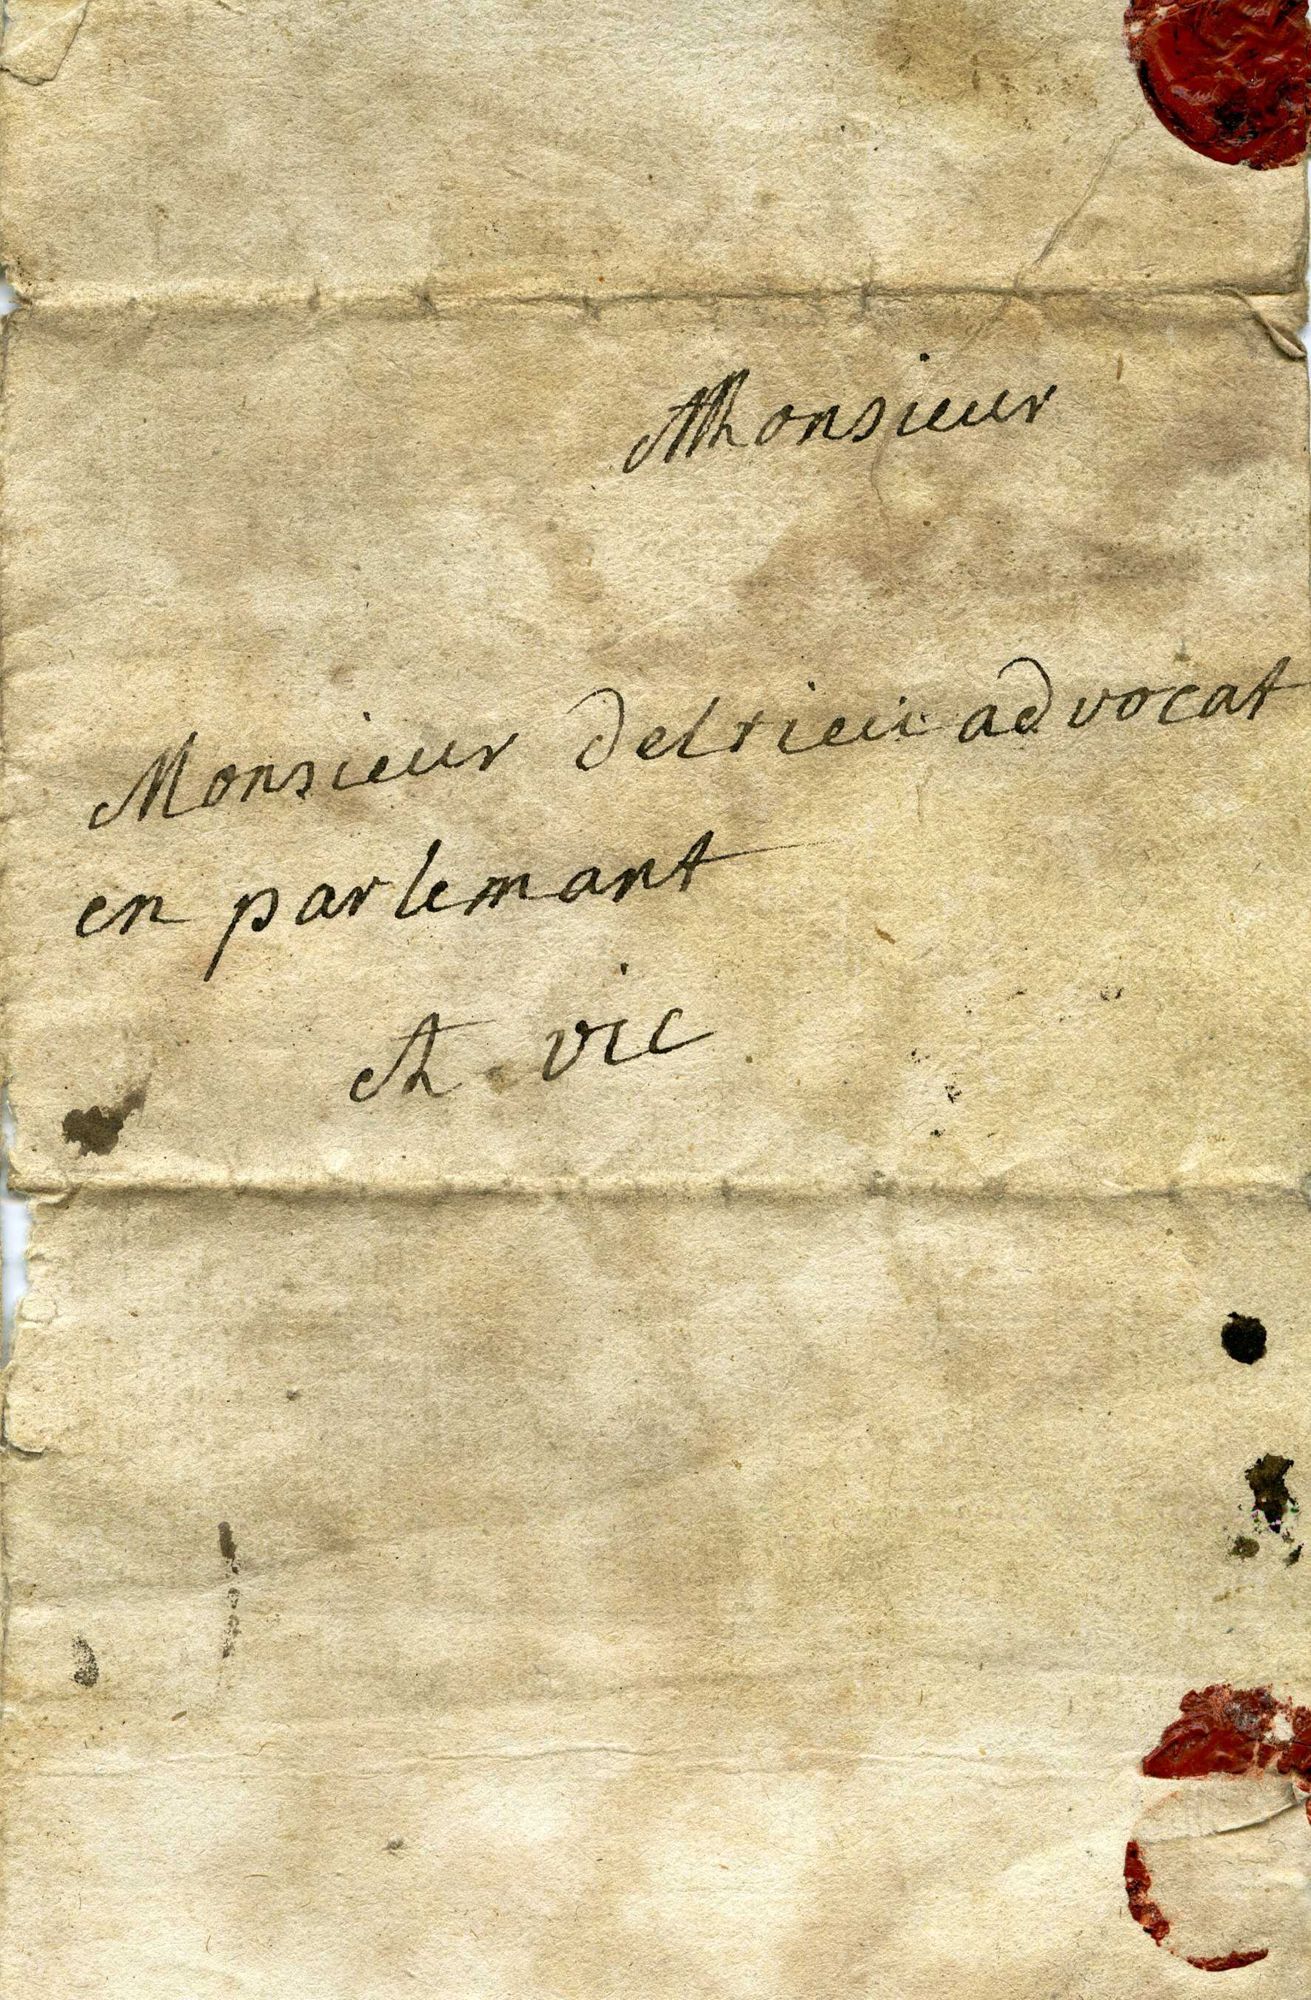 Monsieur
Monsieur delrieu advocat
en parlemant
A vic